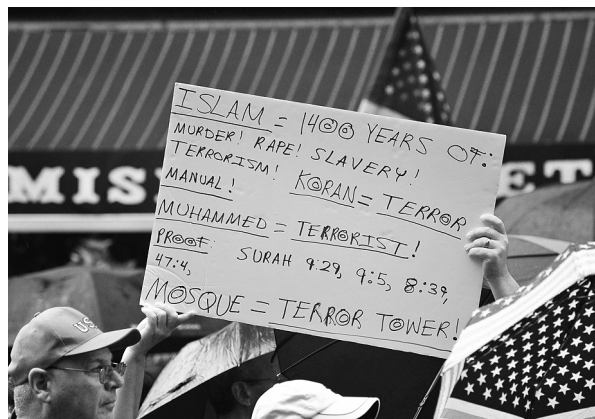 ISLAM = 1400 YEARS OF:
MURDER! RAPE! SLAVERY!
TERRORISM! KORAN = TERROR
MANUAL!
MUHAMMED = TERRORIST!
PROOF: SURAH 9:29, 9:5, 8:39,
47:4,
MOSQUE = TERROR TOWER!
MIS
ET
US